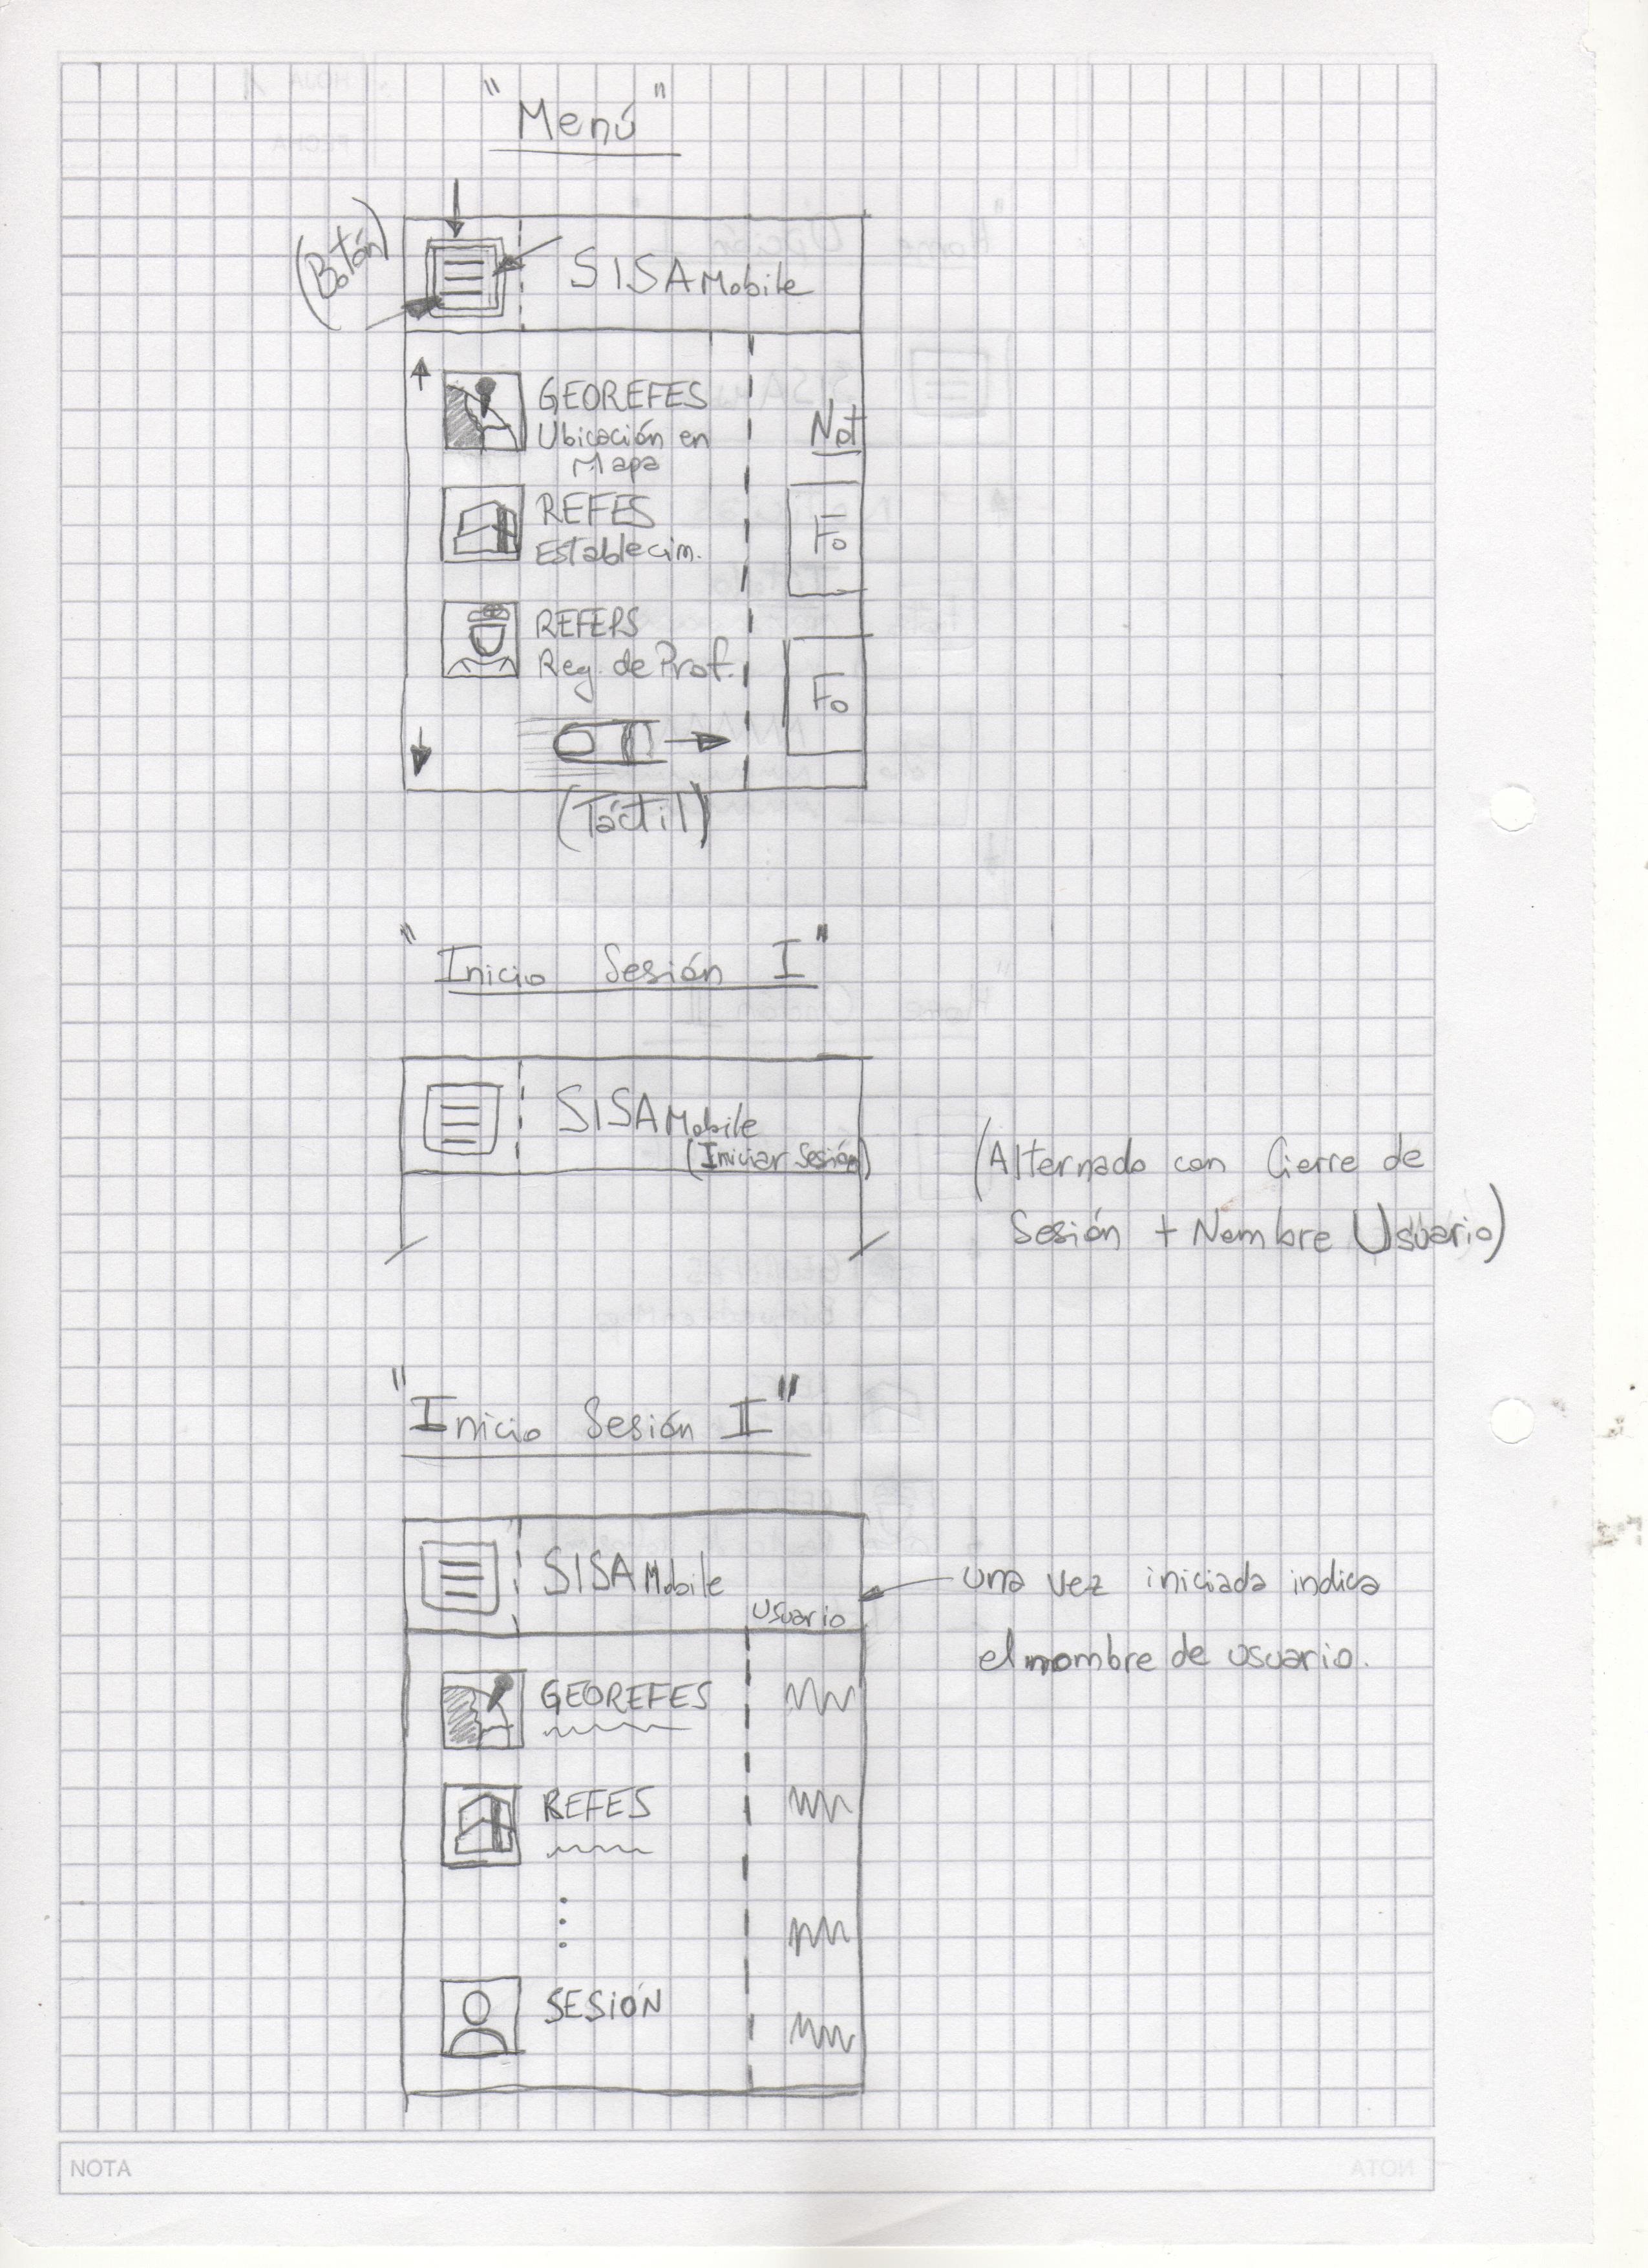 "Menú"
(Botón)
SISA Mobile
GEOREFES
Ubicación en
Mapa
Not
REFES
Establecim.
Fo
REFEPS
Reg. de Prof.
Fo
(Táctil)
"Inicio Sesión I"
SISA Mobile
(Iniciar Sesión)
(Alternado con Cierre de
Sesión + Nombre Usuario)
"Inicio Sesión II"
SISA Mobile
Usuario
una vez iniciada indica
el nombre de usuario.
GEOREFES
REFES
SESIÓN
NOTA